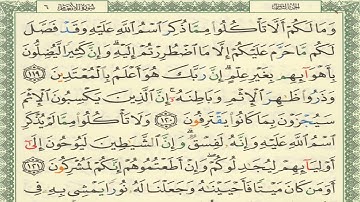 سورة الأنعام ٦
وَمَا لَكُمْ أَلَّا تَأْكُلُوا مِمَّا ذُكِرَ اسْمُ اللَّهِ عَلَيْهِ وَقَدْ فَصَّلَ
لَكُم مَّا حَرَّمَ عَلَيْكُمْ إِلَّا مَا اضْطُرِرْتُمْ إِلَيْهِ وَإِنَّ كَثِيرًا لَّيُضِلُّونَ
بِأَهْوَآئِهِم بِغَيْرِ عِلْمٍ إِنَّ رَبَّكَ هُوَ أَعْلَمُ بِالْمُعْتَدِينَ ١١٩
وَذَرُوا ظَٰهِرَ الْإِثْمِ وَبَاطِنَهُ إِنَّ الَّذِينَ يَكْسِبُونَ الْإِثْمَ
سَيُجْزَوْنَ بِمَا كَانُوا يَقْتَرِفُونَ ١٢٠ وَلَا تَأْكُلُوا مِمَّا لَمْ يُذْكَرِ
اسْمُ اللَّهِ عَلَيْهِ وَإِنَّهُ لَفِسْقٌ وَإِنَّ الشَّيَٰطِينَ لَيُوحُونَ إِلَىٰ
أَوْلِيَآئِهِمْ لِيُجَٰدِلُوكُمْ وَإِنْ أَطَعْتُمُوهُمْ إِنَّكُمْ لَمُشْرِكُونَ ١٢١
أَوَمَن كَانَ مَيْتًا فَأَحْيَيْنَٰهُ وَجَعَلْنَا لَهُ نُورًا يَمْشِي بِهِ فِي